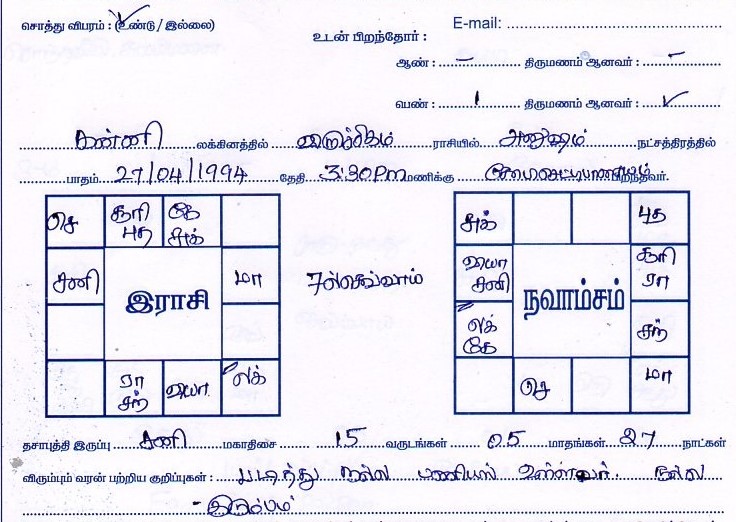 சொத்து விபரம் : (உண்டு / இல்லை) E-mail:
உடன் பிறந்தோர் :
ஆண் : – திருமணம் ஆனவர் : –
பெண் : 1 திருமணம் ஆனவர் : ✓
கன்னி லக்கினத்தில் விருச்சிகம் ராசியில் அனுஷம் நட்சத்திரத்தில்
பாதம் 27/04/1994 தேதி 3:30 Pm மணிக்கு பிறந்தவர்.
செ சூரி புத கே சுக்
சனி மா
இராசி
ரா சந் வியா லக்
சுக் புத
வியா சனி சூரி ரா
நவாம்சம்
லக் கே சந்
செ மா
தசாபுத்தி இருப்பு சனி மகாதிசை 15 வருடங்கள் 05 மாதங்கள் 27 நாட்கள்
விரும்பும் வரன் பற்றிய குறிப்புகள் : படித்து நல்ல பணியில் உள்ளவர். நல்ல